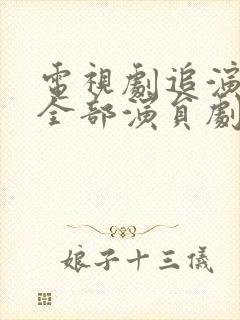 電視劇追演
全部演員劇
娘子十三儀